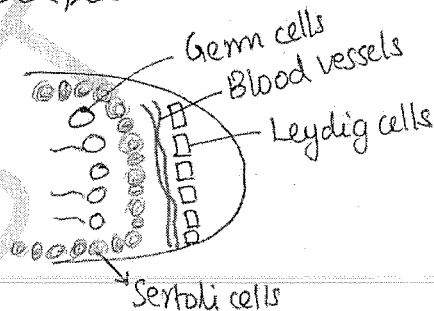 Germ cells
Blood vessels
Leydig cells
Sertoli cells